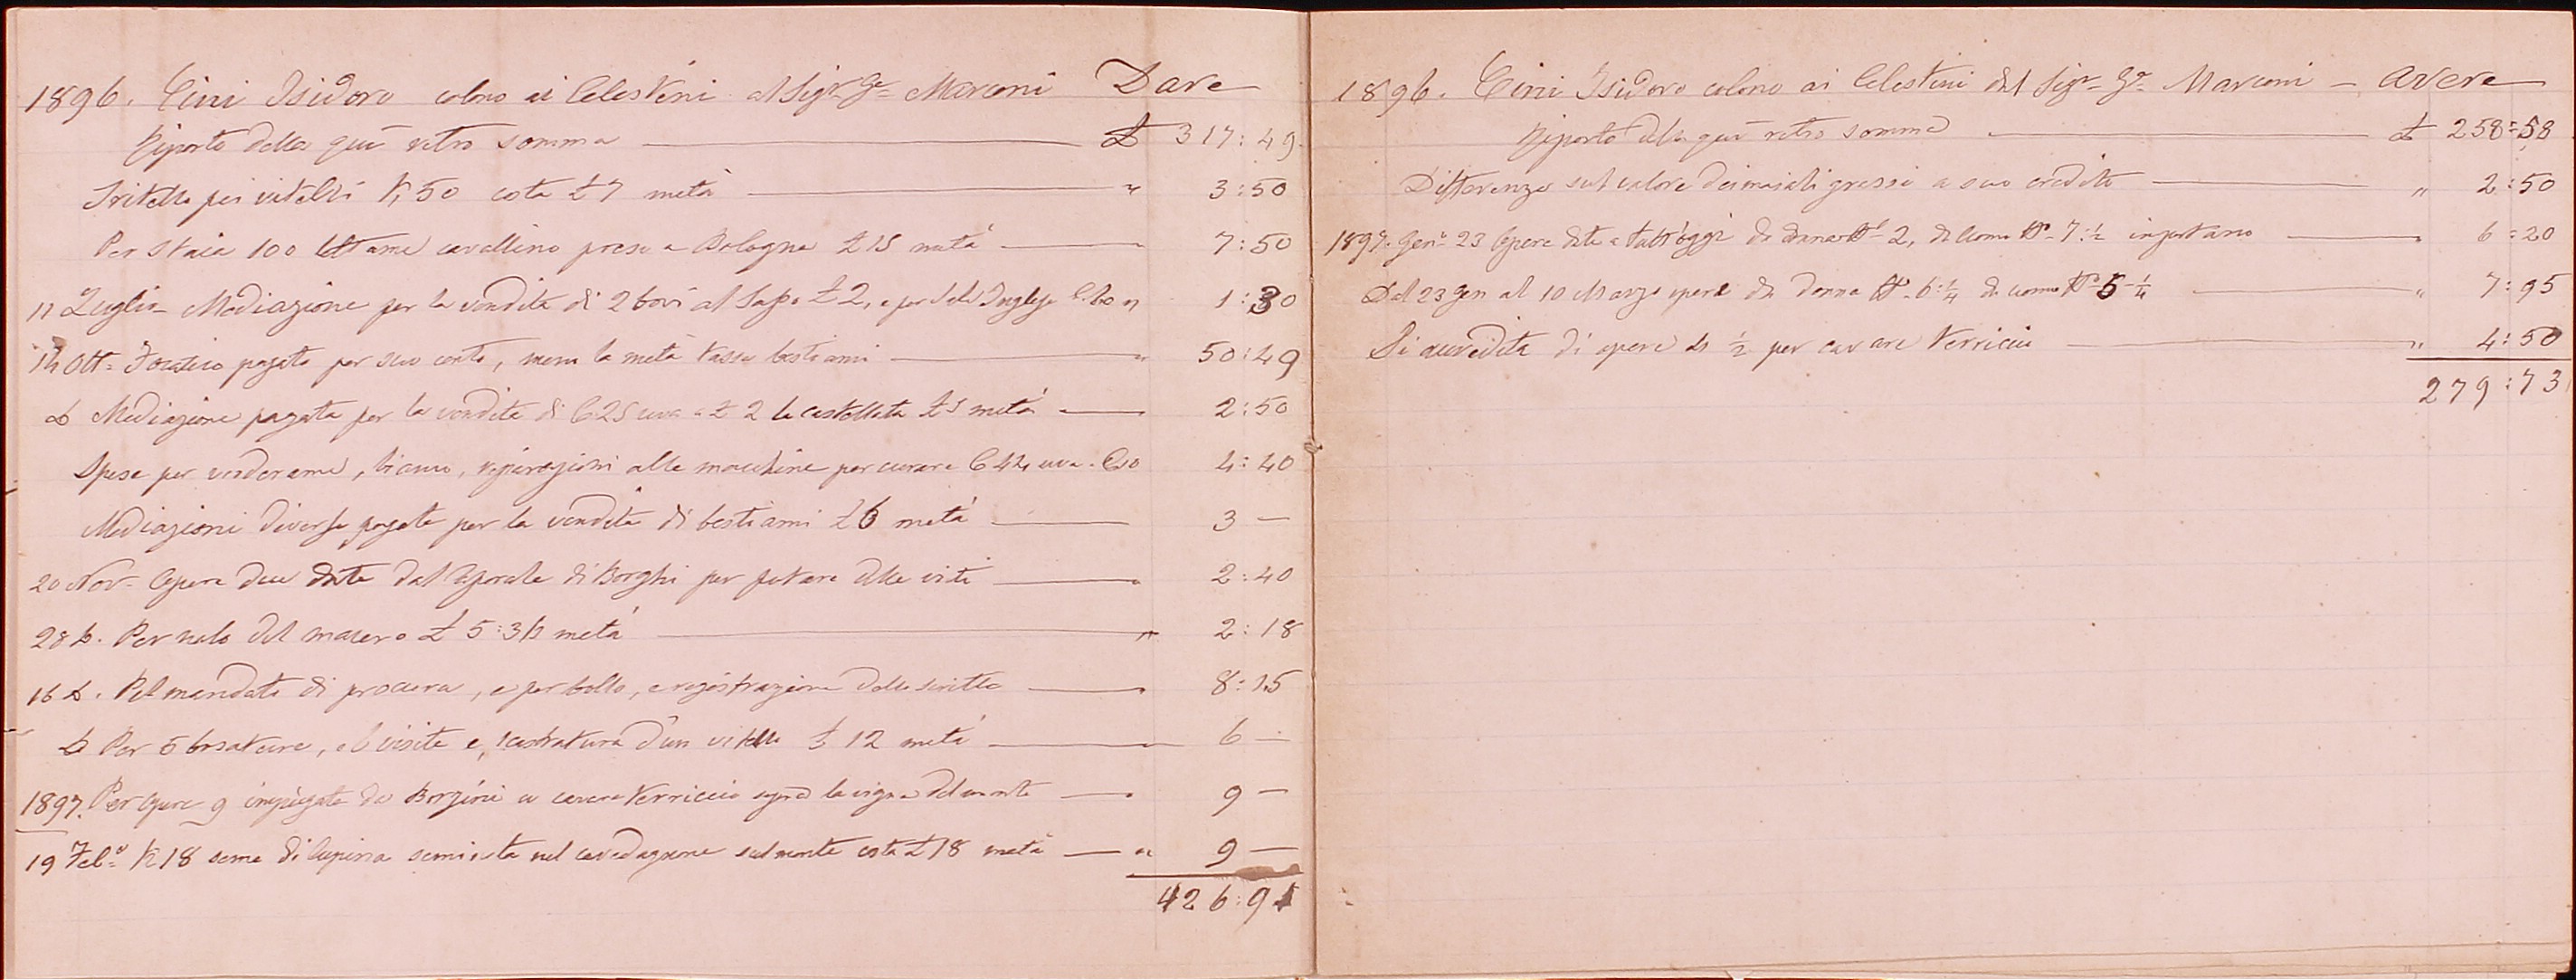 1896. Cini Isidoro colono ai Celestini al Sigr Ge Marconi Dare
Riporto della qui retro somma £ 317:49
Tritello pei vitelli K, 50 costa £ 7 metà " 3:50
Per staia 100 lettame cavallino preso a Bologna £ 15 metà 7:50
11 Luglio Mediazione per la vendita di 2 bovi al £ 2, e per 1:30
14 Ott= Focatico pagato per suo conto, meno la metà tassa bestiami " 50:49
Mediazione pagata per la vendita di C 25 uva a £ 2 la castellata £ 5 metà 2:50
Spese per verderame, riparazioni alle macchine per curare C 44 uva 4:40
Mediazioni diverse pagate per la vendita di bestiami £ 6 metà 3 —
20 Nov= Opere due date dal Caporale di Borghi per potare alle viti 2:40
28 Per nolo del macero £ 5:36 metà " 2:18
16 Pel mandato di procura, e per bollo, e registrazione della scritta 8:15
Per 5 visite e castratura d'un vitello £ 12 metà 6 —
1897. Per opere 9 impiegate da Borgini a cavare Verriccio la vigna del monte 9 —
19 Feb= K 18 seme di lupina seminata nel cavedagnone sul monte costa £ 18 metà " 9 —
426:91
1896. Cini Isidoro colono ai Celestini del Sigr Ge Marconi — Avere
Riporto della qui retro somma £ 258:58
Differenza sul valore dei maiali grassi a suo credito " 2:50
1897. Gen= 23 Opere date a tutt'oggi da donna N° 2, da uomo N° 7:½ importano 6:20
Dal 23 Gen al 10 Marzo opere da donna N° 6:¼ da uomo N° 5 ¼ " 7:95
Si accredita di opere 4 ½ per cavare Verriccio " 4:50
279:73